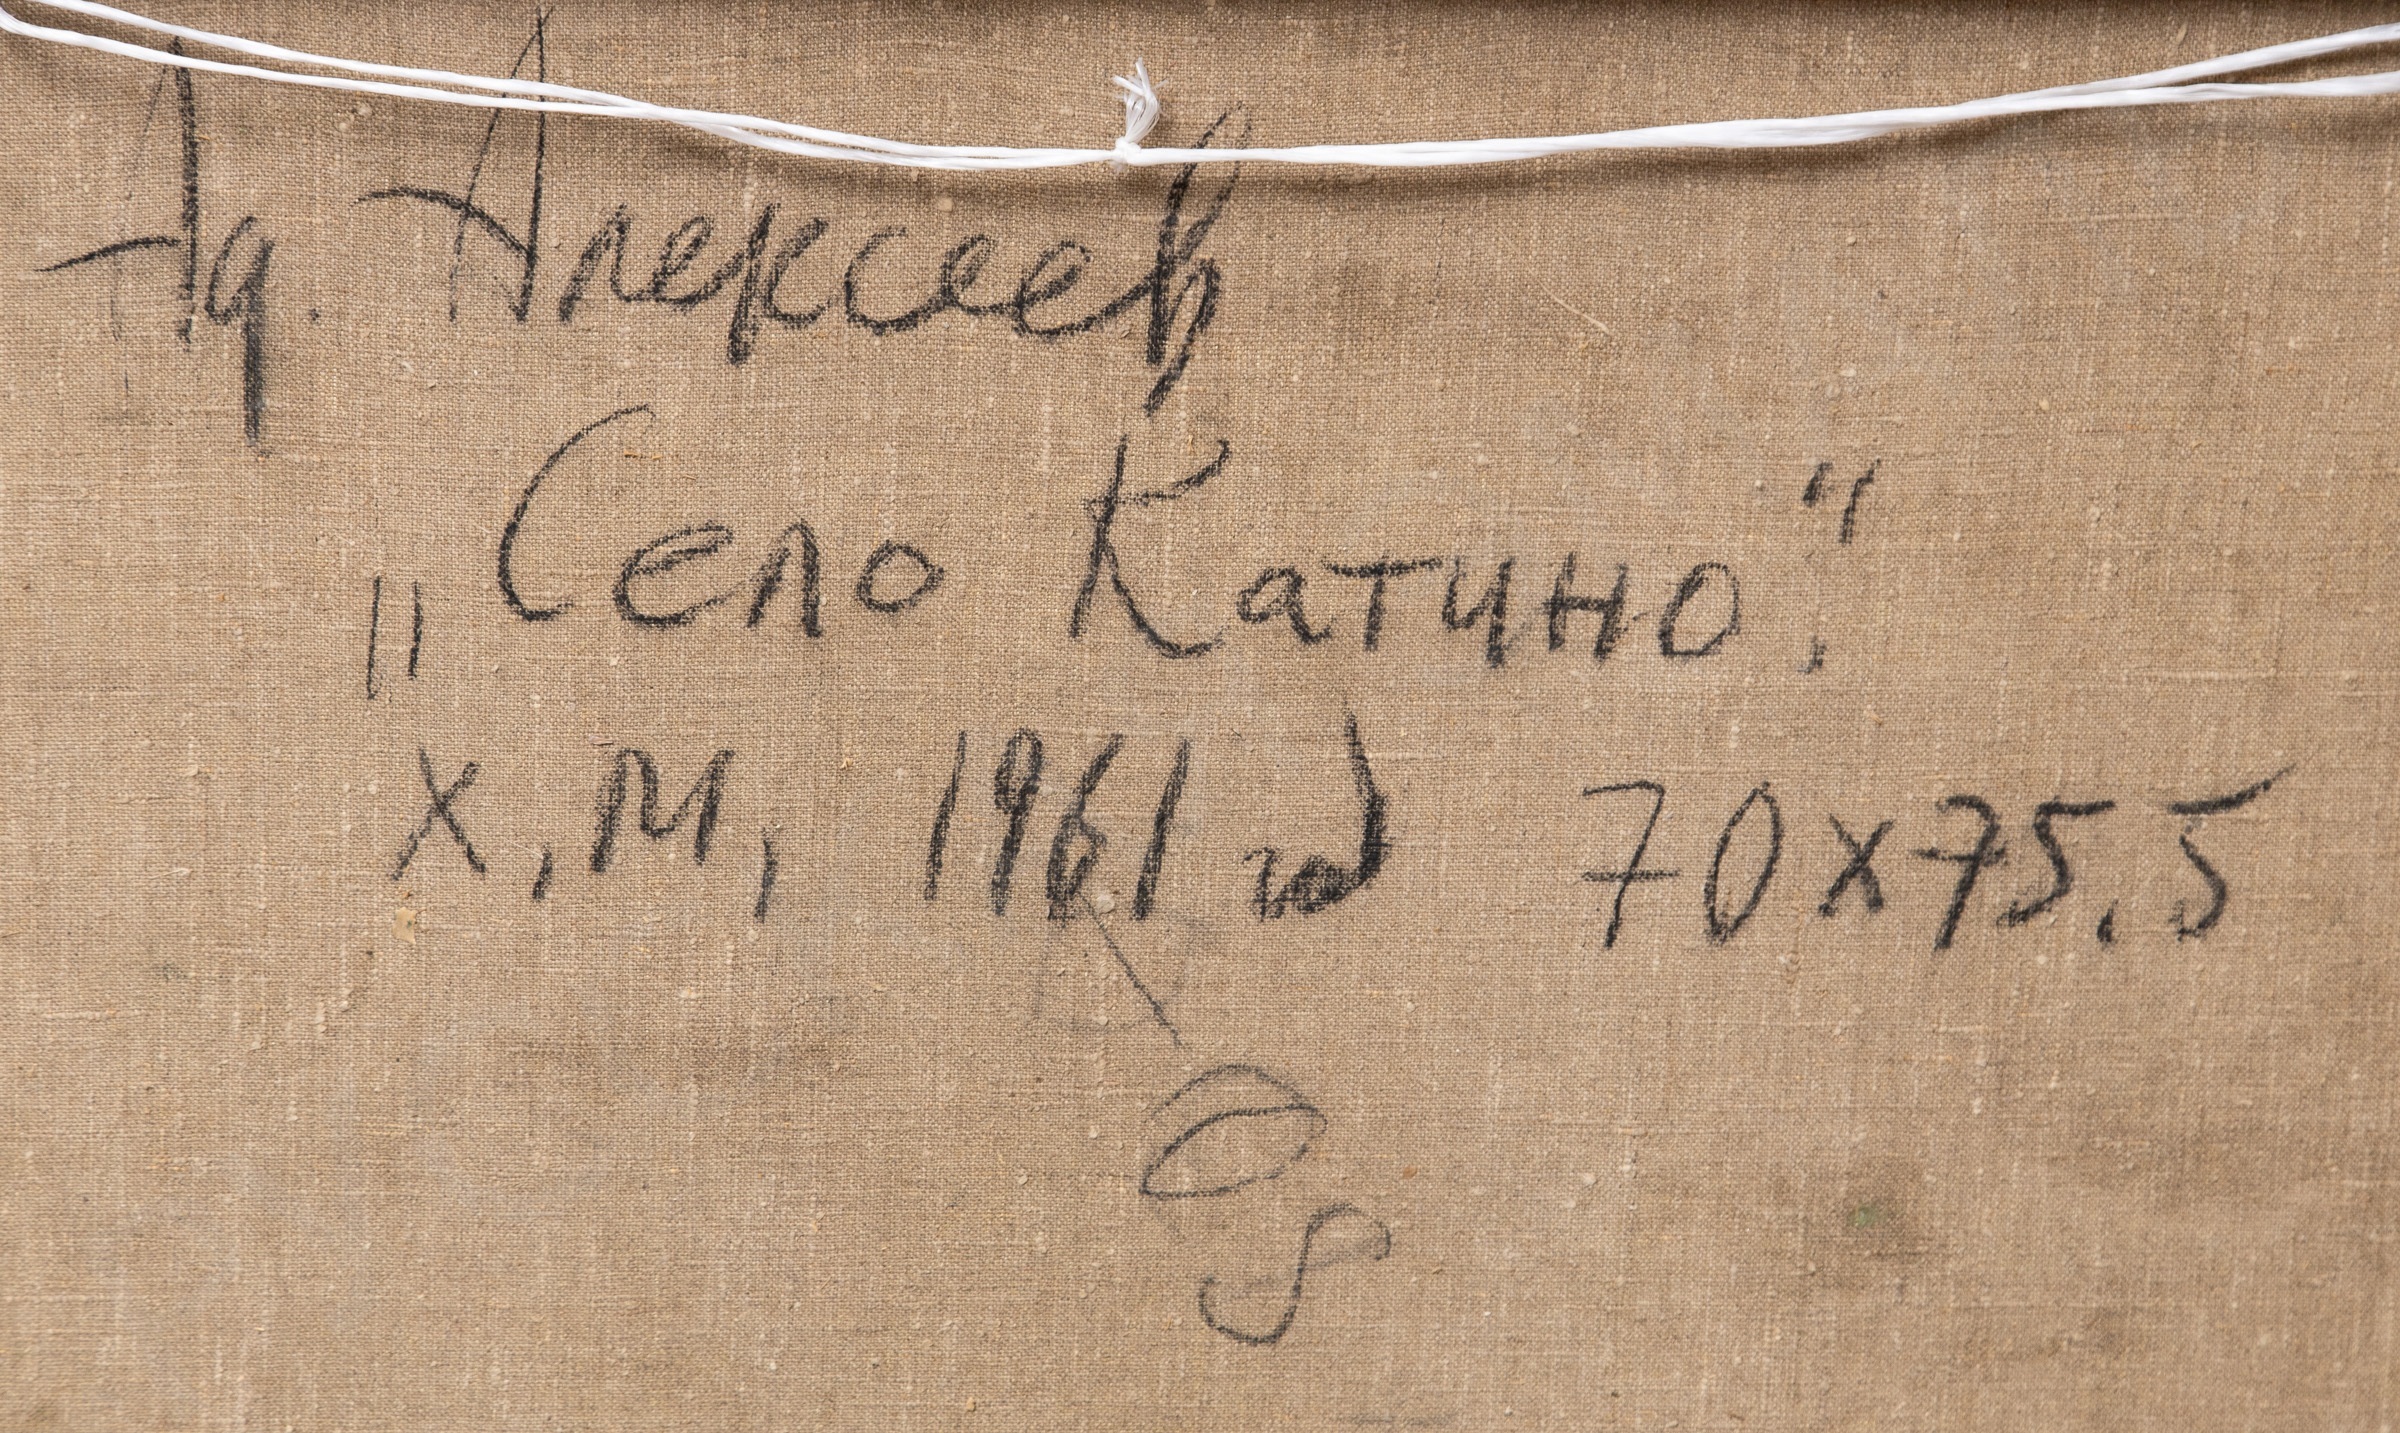 Ад. Алексеев
„Село Катино".
х, м, 1961 70х75.5